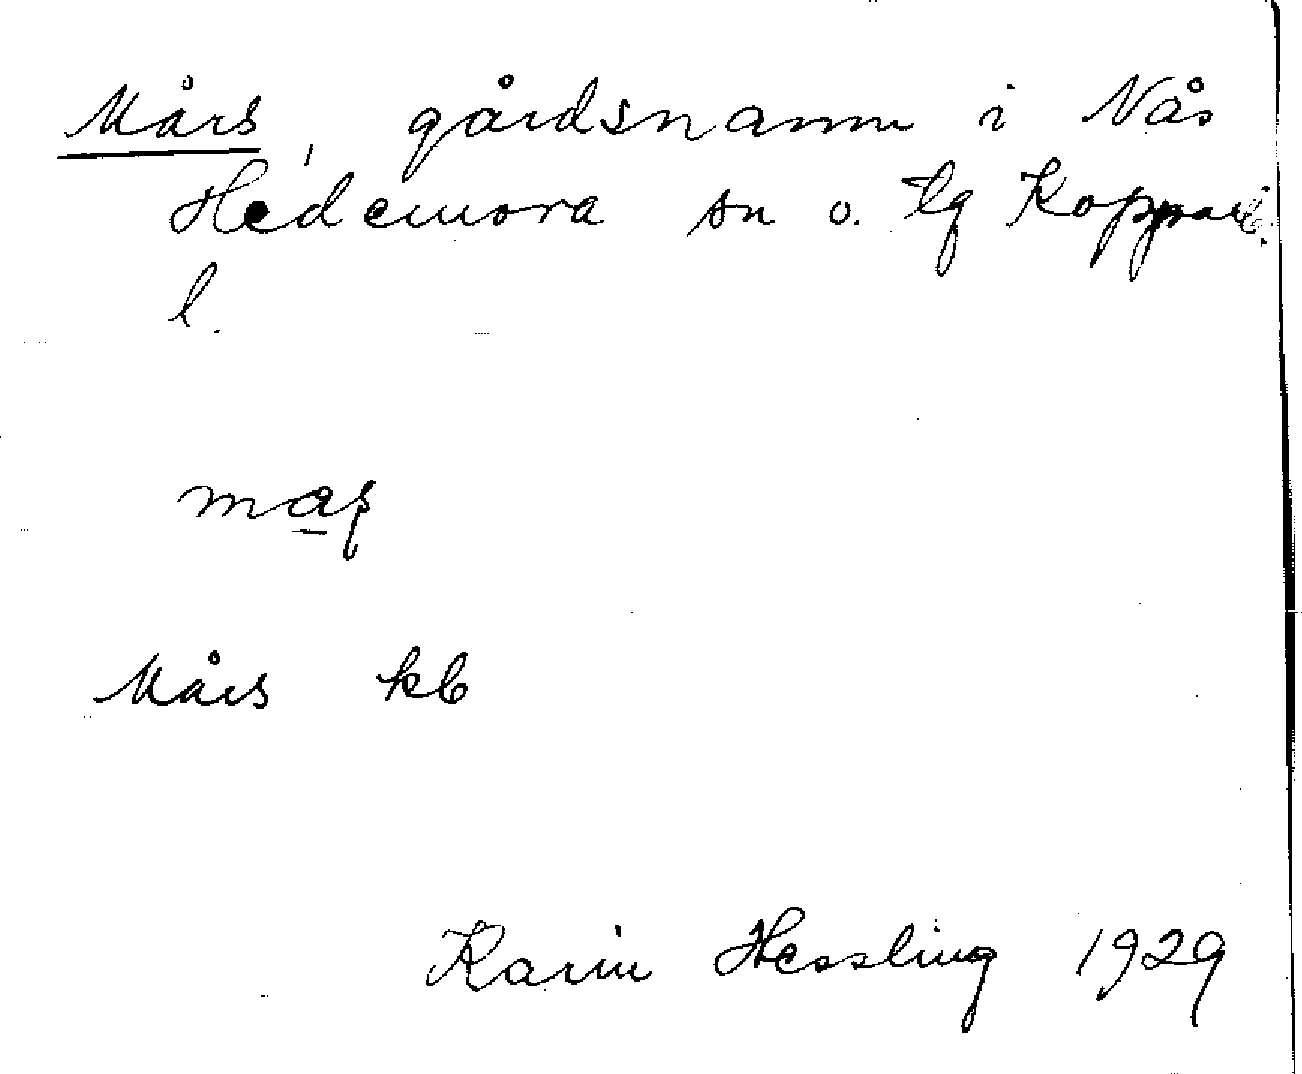 Mårs, gårdsnamn i Nås
Hedemora sn o. tg Kopparb.
l.
mas
Mårs kb
Karin Hessling 1929